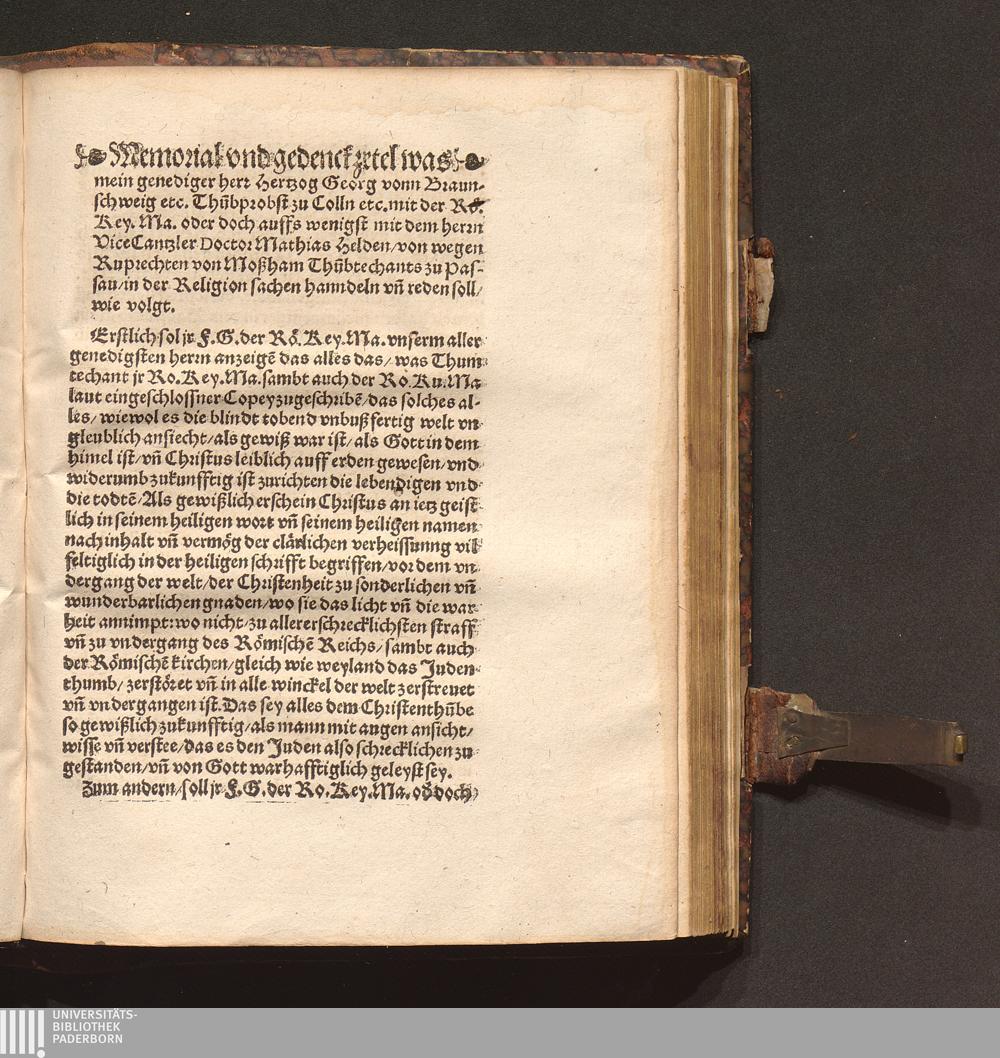 Memorial vnd gedenckzetel was
mein genediger herr Hertzog Georg vonn Braun-
schweig etc. Thůbprobst zu Colln etc. mit der Rö.
Key. Ma. oder doch auffs wenigst mit dem herrn
ViceCantzler Doctor Mathias Helden/ von wegen
Ruprechten von Moßham Thůbtechants zu Pas-
sau/ in der Religion sachen hanndeln vñ reden soll/
wie volgt.
Erstlich sol jr F. G. der Rö. Key. Ma. vnserm aller
genedigsten herrn anzeigē das alles das/ was Thum
techant jr Ro. Key. Ma. sambt auch der Ro. Ku. Ma
laut eingeschlossner Copey zugeschribē/ das solches al-
les/ wiewol es die blindt tobend vnbußfertig welt vn-
gleublich ansiecht/ als gewiß war ist/ als Gott in dem
himel ist/ vñ Christus leiblich auff erden gewesen/ vnd
widerumb zukunfftig ist zurichten die lebendigen vnd
die todtē/ Als gewißlich erschein Christus an ietz geist
lich in seinem heiligen wort vñ seinem heiligen namen
nach inhalt vñ vermög der clärlichen verheissunng vil
feltiglich in der heiligen schrifft begriffen/ vor dem vn
dergang der welt/ der Christenheit zu sonderlichen vñ
wunderbarlichen gnaden/ wo sie das licht vñ die war-
heit annimpt: wo nicht/ zu allererschrecklichsten straff
vñ zu vndergang des Römischē Reichs/ sambt auch
der Römischē kirchen/ gleich wie weyland das Juden-
thumb/ zerstöret vñ in alle winckel der welt zerstreuet
vñ vndergangen ist. Das sey alles dem Christenthůbe
so gewißlich zukunfftig/ als mann mit augen ansicht/
wisse vñ verstee/ das es den Juden also schrecklichen zu-
gestanden/ vñ von Gott warhafftiglich geleyst sey.
Zum andern/ soll jr F. G. der Ro. Key. Ma. od doch
UNIVERSITÄTS-
BIBLIOTHEK
PADERBORN